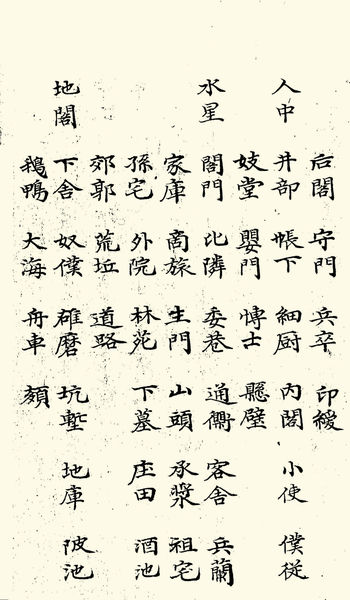 后閣 守門 兵卒 印綬
人中 井部 帳下 細厨 内閣 小使 僕従
妓堂 嬰門 博士 懸壁
水星 閣門 比隣 委巷 通衢 客舎 兵蘭
家庫 商旅 生門 山頭 承漿 祖宅
孫宅 外院 林苑 下墓 庄田 酒池
郊郭 荒坵 道路
地閣 下舎 奴僕 碓磨 坑塹 地庫 陂池
鵝鴨 大海 舟車